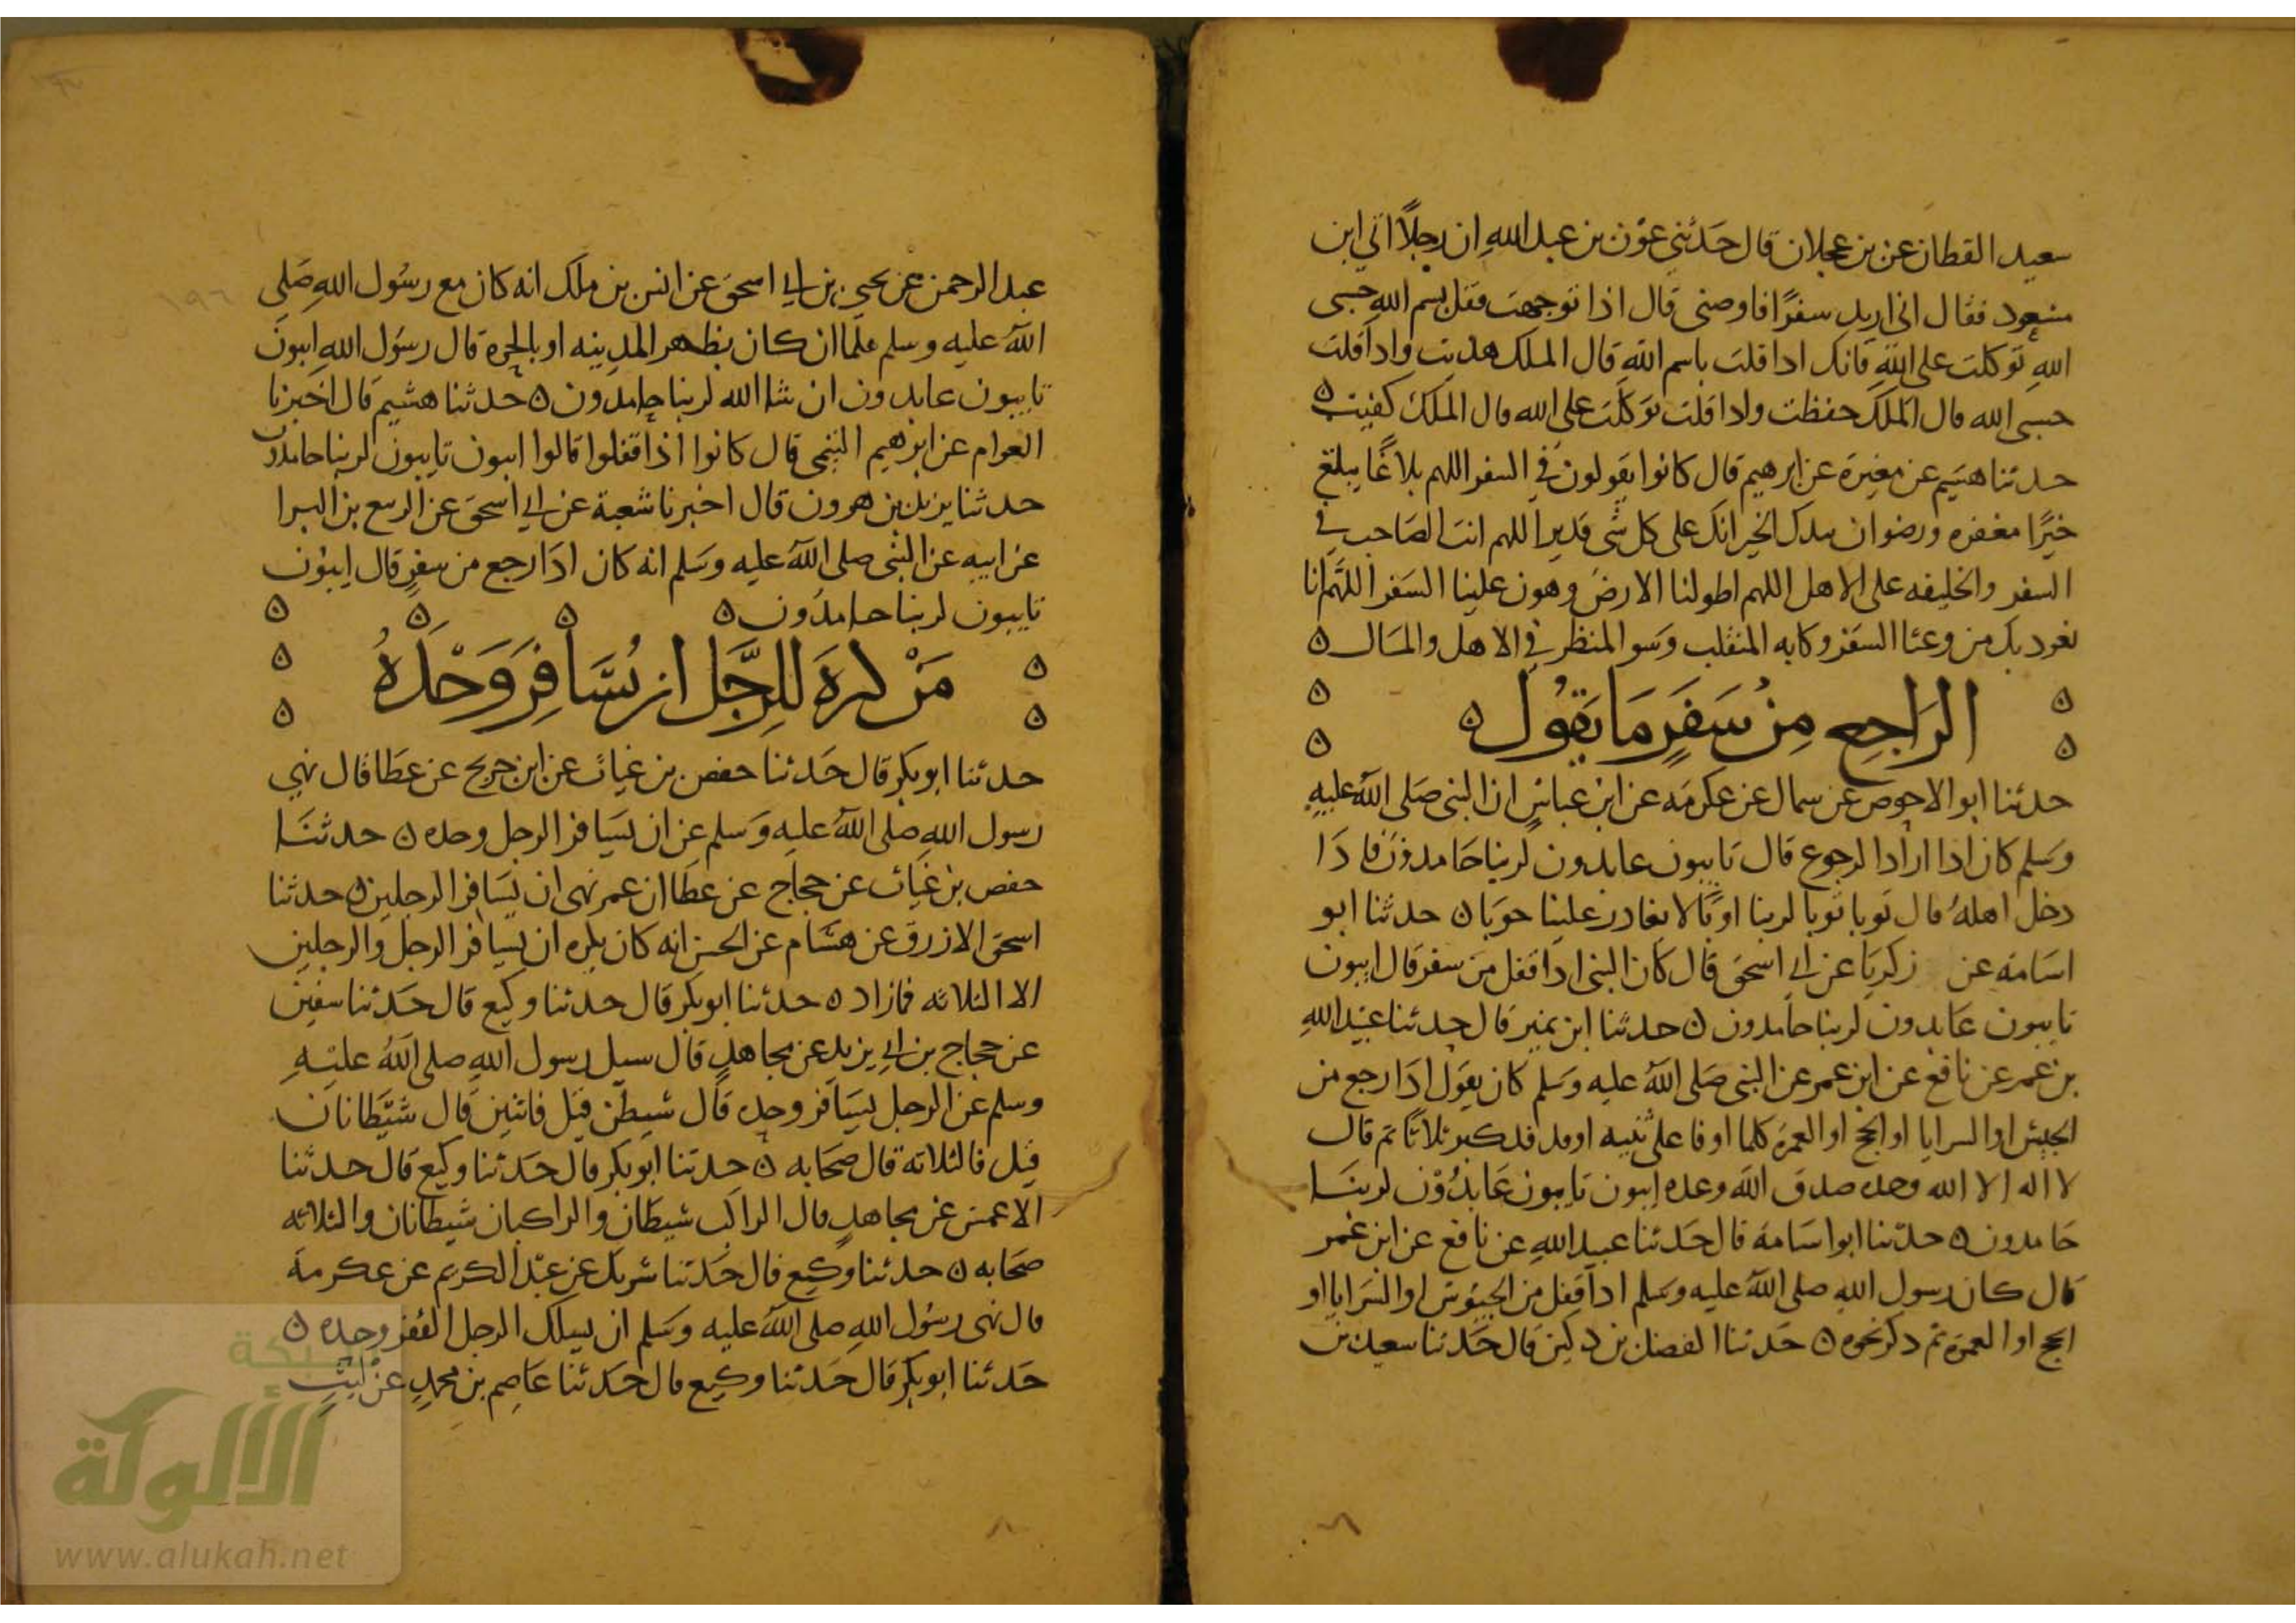 سعيد القطان عن بن عجلان قال حدثني عون بن عبد الله ان رجلا اتي ابن
مسعود فقال اني اريد سفرا فاوصني قال اذا توجهت فقل بسم الله حسبي
الله توكلت علي الله فانك اذا قلت باسم الله قال الملك هديت واذا قلت
حسبي الله قال الملك حفظت واذا قلت توكلت علي الله قال الملك كفيت ٥
حدثنا هشيم عن مغيرة عن ابرهيم قال كانوا يقولون في السفر اللهم بلاغا يبلغ
خيرا مغفره ورضوان بيدك الخير انك علي كل شي قدير اللهم انت الصاحب في
السفر والخليفه علي الاهل اللهم اطو لنا الارض وهون علينا السفر اللهم انا
نعوذ بك من وعثا السفر وكابه المنقلب وسو المنظر في الاهل والمال ٥
الراجع من سفر ما يقول ٥
حدثنا ابو الاحوص عن سماك عن عكرمه عن ابن عباس ان النبي صلي الله عليه
وسلم كان اذا اراد الرجوع قال تايبون عابدون لربنا حامدون فاذا
دخل اهله قال توبا توبا لربنا اوبا لا يغادر علينا حوبا ٥ حدثنا ابو
اسامه عن زكريا عن ابي اسحق قال كان النبي اذا قفل من سفر قال ايبون
تايبون عابدون لربنا حامدون ٥ حدثنا ابن نمير قال حدثنا عبيد الله
بن عمر عن نافع عن ابن عمر عن النبي صلي الله عليه وسلم كان يقول اذا رجع من
الجيش او السرايا او الحج او العمرة كلما اوفا علي ثنيه او فدفد كبر ثلاثا ثم قال
لا اله الا الله وحده صدق الله وعده ايبون تايبون عابدون لربنا
حامدون ٥ حدثنا ابو اسامة قال حدثنا عبيد الله عن نافع عن ابن عمر
قال كان رسول الله صلي الله عليه وسلم اذا قفل من الجيوش او السرايا او
الحج او العمرة ثم ذكر نحوه ٥ حدثنا الفضل بن دكين قال حدثنا سعيد بن
١٩٦
عبد الرحمن عن يحيي بن ابي اسحق عن انس بن ملك انه كان مع رسول الله صلي
الله عليه وسلم فلما ان كان بظهر المدينه او بالحرة قال رسول الله ايبون
تايبون عابدون ان شا الله لربنا حامدون ٥ حدثنا هشيم قال اخبرنا
العوام عن ابرهيم التيمي قال كانوا اذا قفلوا قالوا ايبون تايبون لربنا حامدون
حدثنا يزيد بن هرون قال اخبرنا شعبة عن ابي اسحق عن الربيع بن البرا
عن ابيه عن النبي صلي الله عليه وسلم انه كان اذا رجع من سفر قال ايبون
تايبون لربنا حامدون ٥ ٥ ٥ ٥
من كره للرجل ان يسافر وحده
حدثنا ابو بكر قال حدثنا حفص بن غياث عن ابن جريج عن عطا قال نهي
رسول الله صلي الله عليه وسلم عن ان يسافر الرجل وحده ٥ حدثنا
حفص بن غياث عن حجاج عن عطا ان عمر نهي ان يسافر الرجلين ٥ حدثنا
اسحق الازرق عن هشام عن الحسن انه كان يكره ان يسافر الرجل والرجلين
الا الثلاثه فمازاد ٥ حدثنا ابو بكر قال حدثنا وكيع قال حدثنا سفين
عن حجاج بن ابي يزيد عن مجاهد قال سيل رسول الله صلي الله عليه
وسلم عن الرجل يسافر وحده قال شيطن قيل فاثنين قال شيطانان
قيل فالثلاثة قال صحابه ٥ حدثنا ابو بكر قال حدثنا وكيع قال حدثنا
الاعمش عن مجاهد قال الراكب شيطان والراكبان شيطانان والثلاثه
صحابه ٥ حدثنا وكيع قال حدثنا شريك عن عبد الكريم عن عكرمة
قال نهي رسول الله صلي الله عليه وسلم ان يسلك الرجل القفر وحده ٥
حدثنا ابو بكر قال حدثنا وكيع قال حدثنا عاصم بن محمد عن ليث
شبكة
الألوكة
www.alukah.net